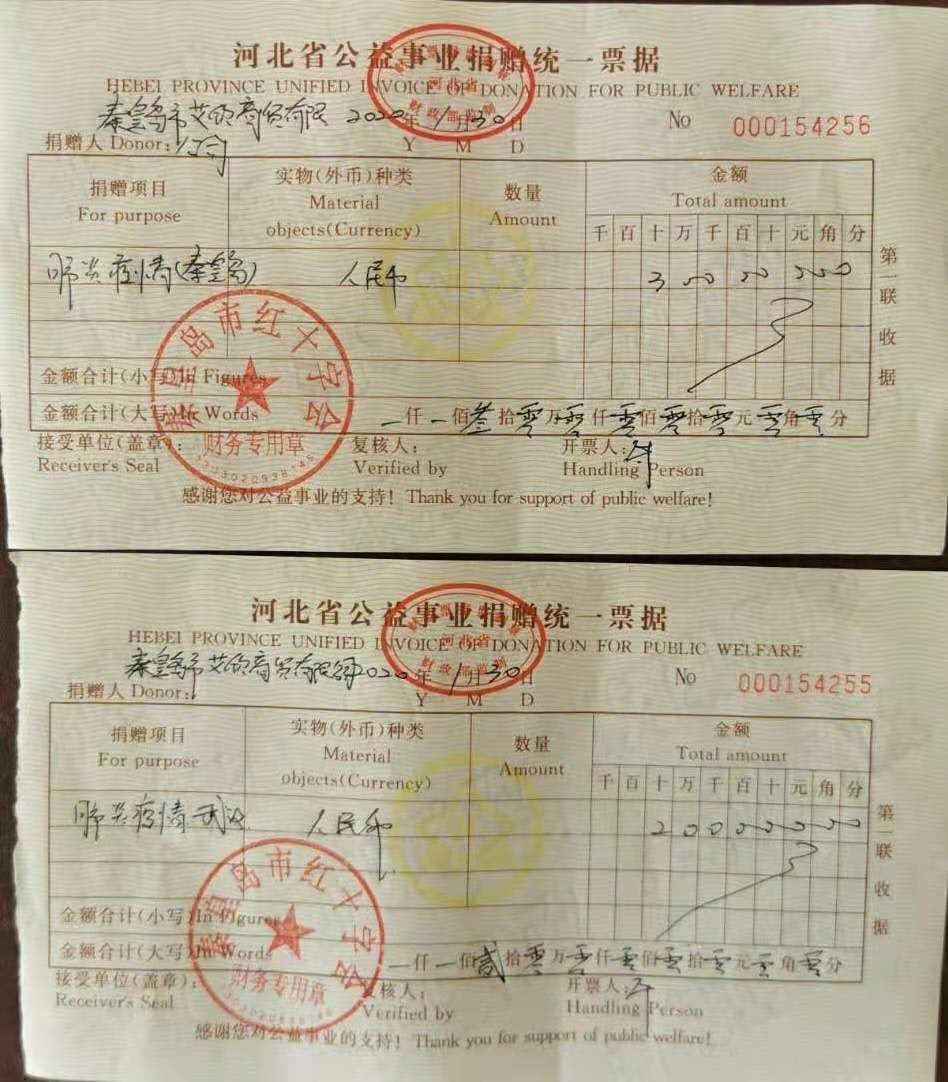 河北省公益事业捐赠统一票据
HEBEI PROVINCE UNIFIED INVOICE OF DONATION FOR PUBLIC WELFARE
河北省
财政部监制
秦皇岛市艾欧商贸有限 2020年1月30日
No 000154256
捐赠人 Donor: 公司
Y M D
捐赠项目
For purpose
实物(外币)种类
Material
objects(Currency)
数量
Amount
金额
Total amount
千 百 十 万 千 百 十 元 角 分
肺炎疫情(秦皇岛) 人民币 3 0 0 0 0 0 0 0
第一联 收据
金额合计(小写)In Figures
金额合计(大写)In Words 一仟一佰叁拾零万零仟零佰零拾零元零角零分
接受单位(盖章): 复核人: 开票人:
Receiver's Seal Verified by Handling Person
秦皇岛市红十字会
财务专用章
感谢您对公益事业的支持! Thank you for support of public welfare!
河北省公益事业捐赠统一票据
HEBEI PROVINCE UNIFIED INVOICE OF DONATION FOR PUBLIC WELFARE
河北省
财政部监制
秦皇岛市艾欧商贸有限公司 2020年1月30日
No 000154255
捐赠人 Donor:
Y M D
捐赠项目
For purpose
实物(外币)种类
Material
objects(Currency)
数量
Amount
金额
Total amount
千 百 十 万 千 百 十 元 角 分
肺炎疫情 武汉 人民币 2 0 0 0 0 0 0 0
第一联 收据
金额合计(小写)In Figures
金额合计(大写)In Words 一仟一佰贰拾零万零仟零佰零拾零元零角零分
接受单位(盖章): 复核人: 开票人:
Receiver's Seal Verified by Handling Person
秦皇岛市红十字会
财务专用章
感谢您对公益事业的支持! Thank you for support of public welfare!